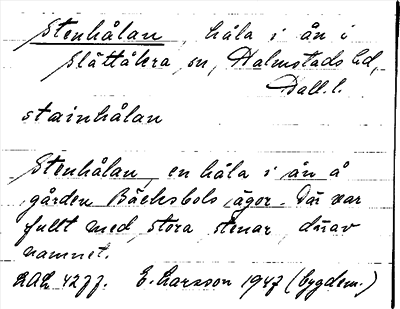 Stenhålan, håla i ån i
Slättåkra sn, Halmstads hd,
Hall. l.
stainhålan
Stenhålan, en håla i ån å
gården Bäcksbols ägor. Där var
fullt med stora stenar, därav
namnet.
LAL 4277. E. Larsson 1947 (bygdem.)